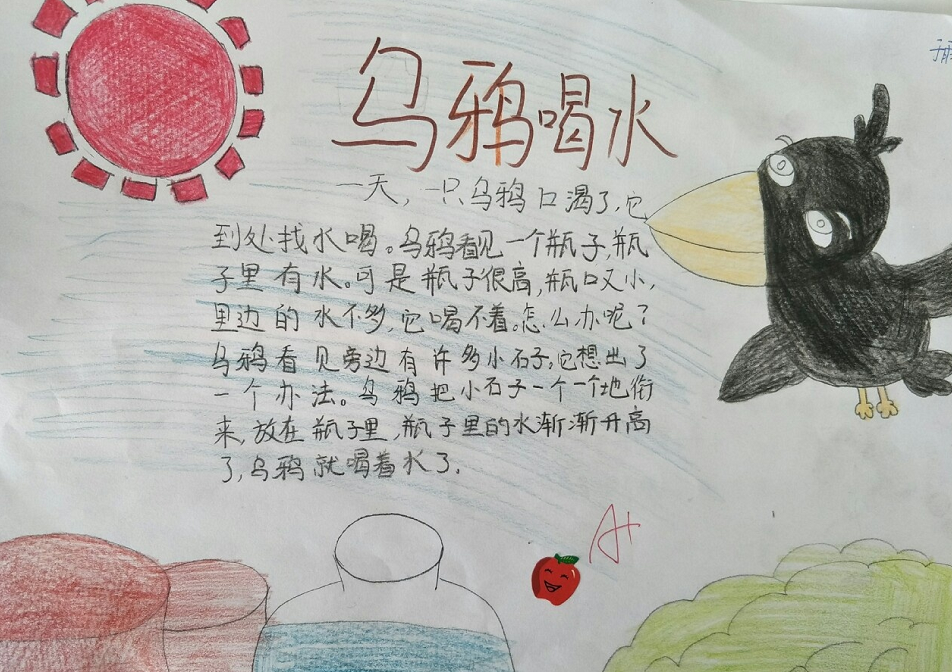 乌鸦喝水
一天,一只乌鸦口渴了,它
到处找水喝。乌鸦看见一个瓶子,瓶
子里有水。可是瓶子很高,瓶口又小,
里边的水不多,它喝不着。怎么办呢?
乌鸦看见旁边有许多小石子,它想出了
一个办法。乌鸦把小石子一个一个地衔
来,放在瓶子里,瓶子里的水渐渐升高
了,乌鸦就喝着水了.
A+